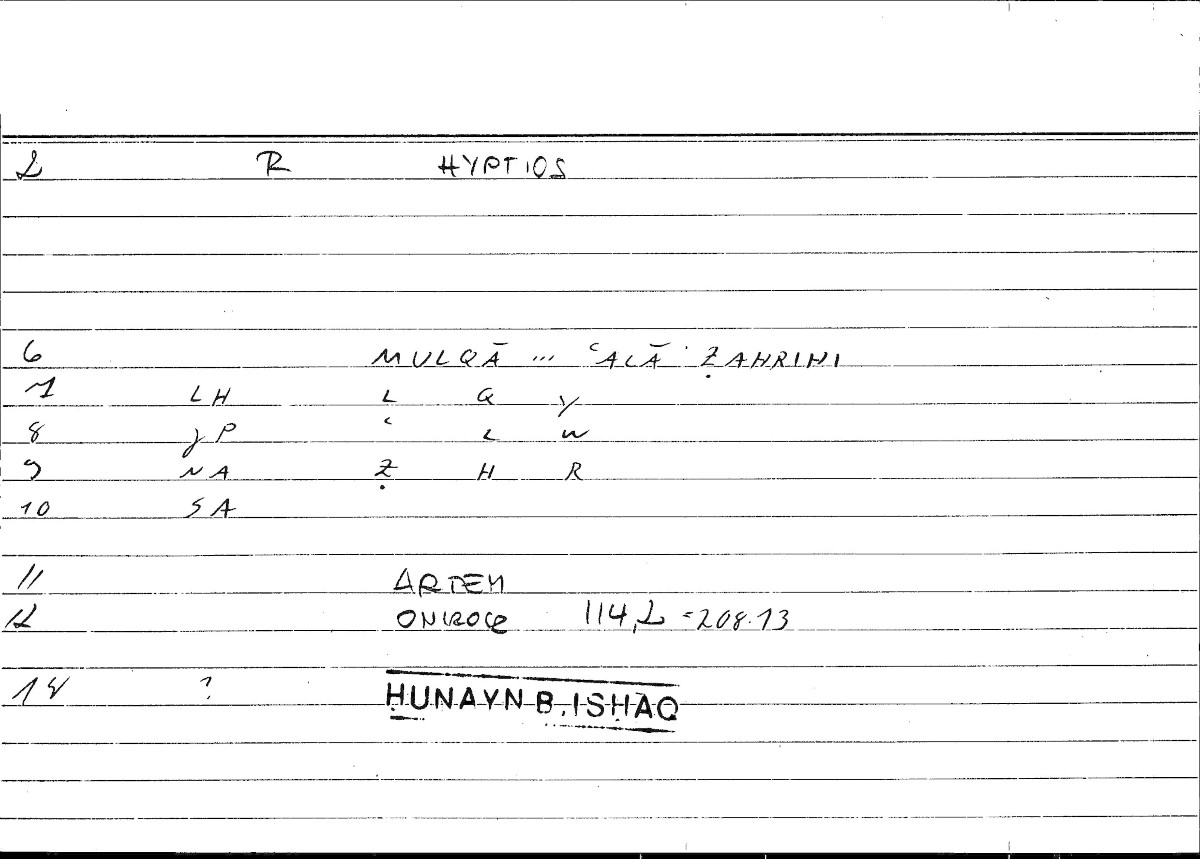 2 R HYPTIOS
6 MULQĀ ... ʿALĀ ẒAHRIHI
7 LH L Q Y
8 JP ʿ L W
9 NA Ẓ H R
10 SA
11 ARTEM
12 ONIROCR 114,2 = 208.13
14 ? ḤUNAYN B. ISḤĀQ